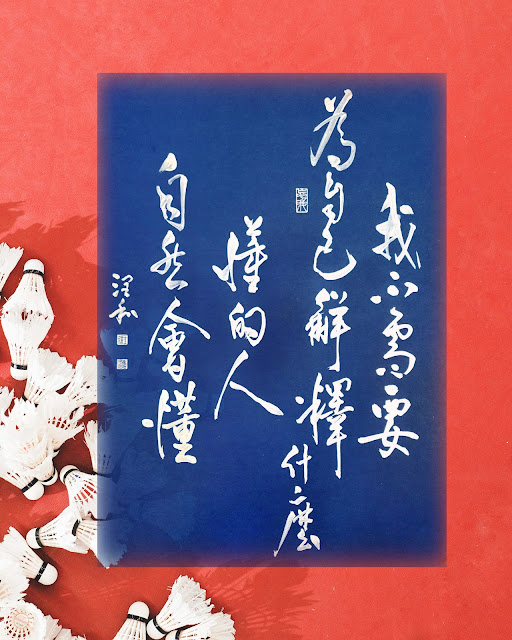 我不需要
為自己解釋什麼
懂的人
自然會懂